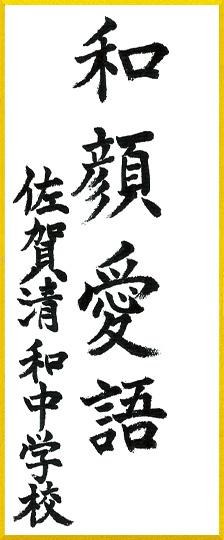 和顔愛語
佐賀清和中学校